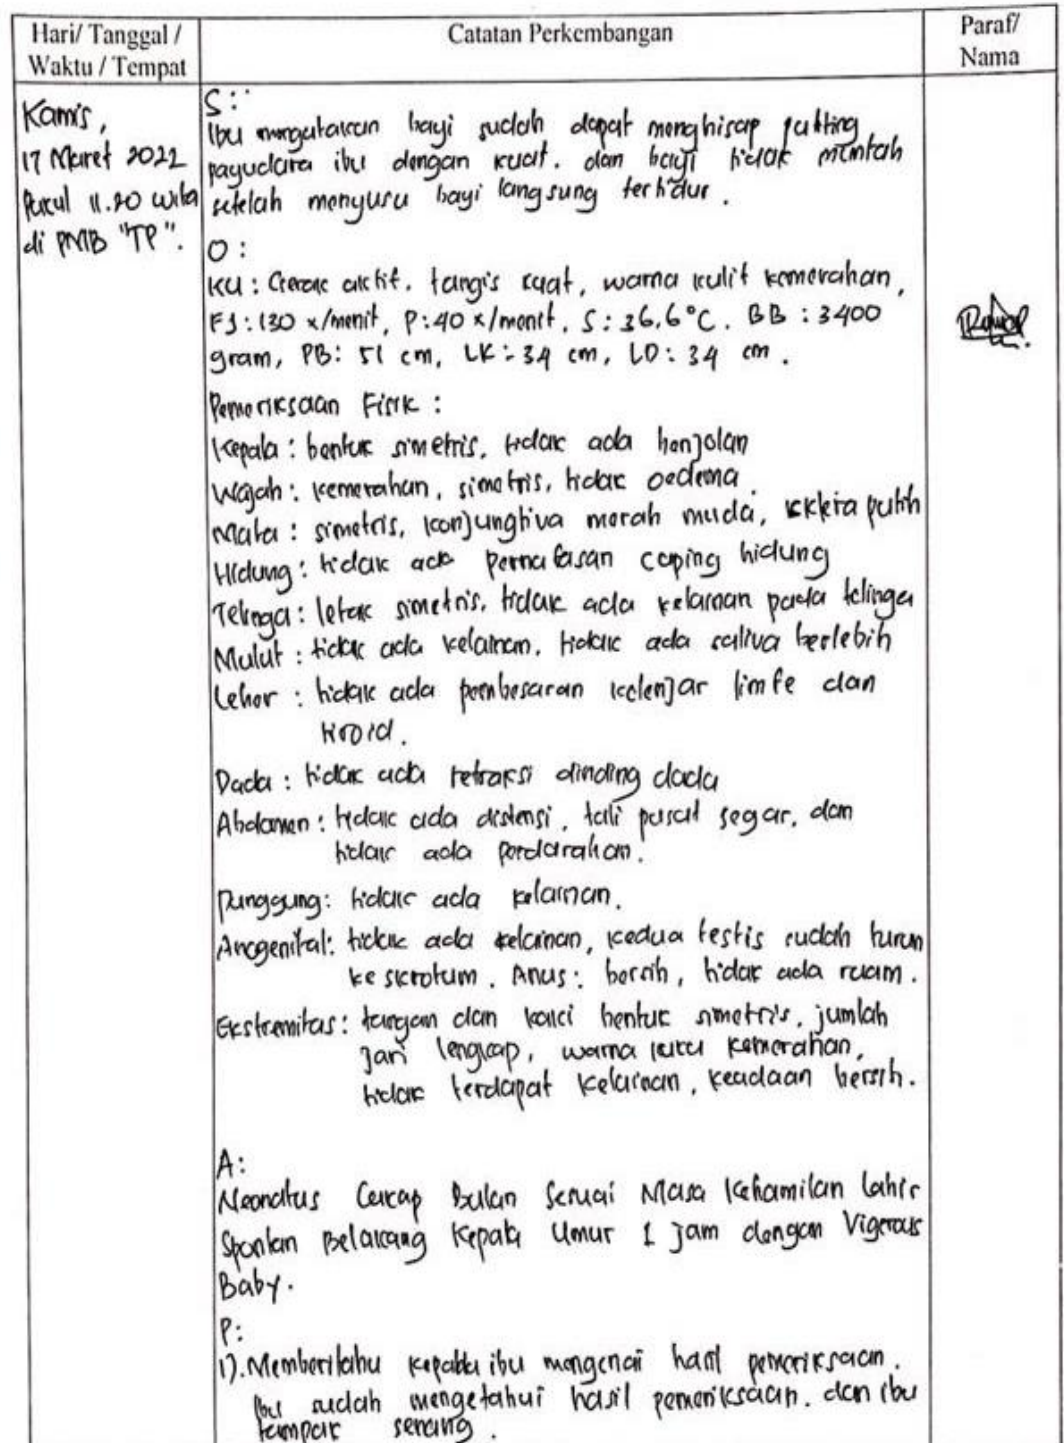 Hari/ Tanggal /
Waktu / Tempat
Catatan Perkembangan
Paraf/
Nama
Kamis,
17 Maret 2022
Pukul 11.20 wita
di PMB "TP".
S:
Ibu mengatakan bayi sudah dapat menghisap putting
payudara ibu dengan kuat. dan bayi tidak muntah
setelah menyusu bayi langsung tertidur.
O:
KU: Gerak aktif, tangis kuat, warna kulit kemerahan,
FJ: 130 x/menit, P: 40 x/menit, S: 36,6°C. BB : 3400
gram, PB: 51 cm, LK: 34 cm, LD: 34 cm.
Pemeriksaan Fisik :
Kepala : bentuk simetris, tidak ada benjolan
Wajah : kemerahan, simetris, tidak oedema
Mata : simetris, konjungtiva merah muda, sklera putih
Hidung : tidak ada pernafasan cuping hidung
Telinga : letak simetris, tidak ada kelainan pada telinga
Mulut : tidak ada kelainan, tidak ada saliva berlebih
Leher : tidak ada pembesaran kelenjar limfe dan
tiroid.
Dada : tidak ada retraksi dinding dada
Abdomen : tidak ada distensi, tali pusat segar, dan
tidak ada perdarahan.
Punggung: tidak ada kelainan.
Anogenital: tidak ada kelainan, kedua testis sudah turun
ke skrotum. Anus: bersih, tidak ada ruam.
Ekstremitas: tangan dan kaki bentuk simetris, jumlah
jari lengkap, warna kuku kemerahan,
tidak terdapat kelainan, keadaan bersih.
A:
Neonatus Cukup Bulan Sesuai Masa Kehamilan Lahir
Spontan Belakang Kepala Umur 1 jam dengan Vigerous
Baby.
P:
1). Memberitahu kepada ibu mengenai hasil pemeriksaan.
Ibu sudah mengetahui hasil pemeriksaan. dan ibu
tampak senang.